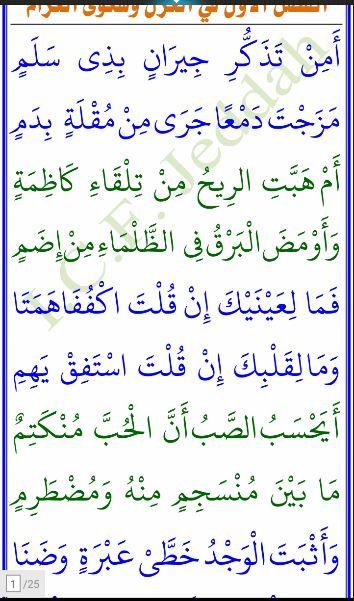 الفصل الأول في الغزل وشكوى الغرام
أَمِنْ تَذَكُّرِ جِيرَانٍ بِذِى سَلَمٍ
مَزَجْتَ دَمْعًا جَرَى مِنْ مُقْلَةٍ بِدَمٍ
أَمْ هَبَّتِ الرِيحُ مِنْ تِلْقَاءِ كَاظِمَةٍ
وَأَوْمَضَ الْبَرْقُ فِى الظَّلْمَاءِ مِنْ إِضَمٍ
فَمَا لِعَيْنَيْكَ إِنْ قُلْتَ اكْفُفَا هَمَتَا
وَمَا لِقَلْبِكَ إِنْ قُلْتَ اسْتَفِقْ يَهِمِ
أَيَحْسَبُ الصَّبُ أَنَّ الْحُبَّ مُنْكَتِمٌ
مَا بَيْنَ مُنْسَجِمٍ مِنْهُ وَمُضْطَرِمٍ
وَأَثْبَتَ الْوَجْدُ خَطَّىْ عَبْرَةٍ وَضَنَا
I.C.F. Jeddah
1 /25